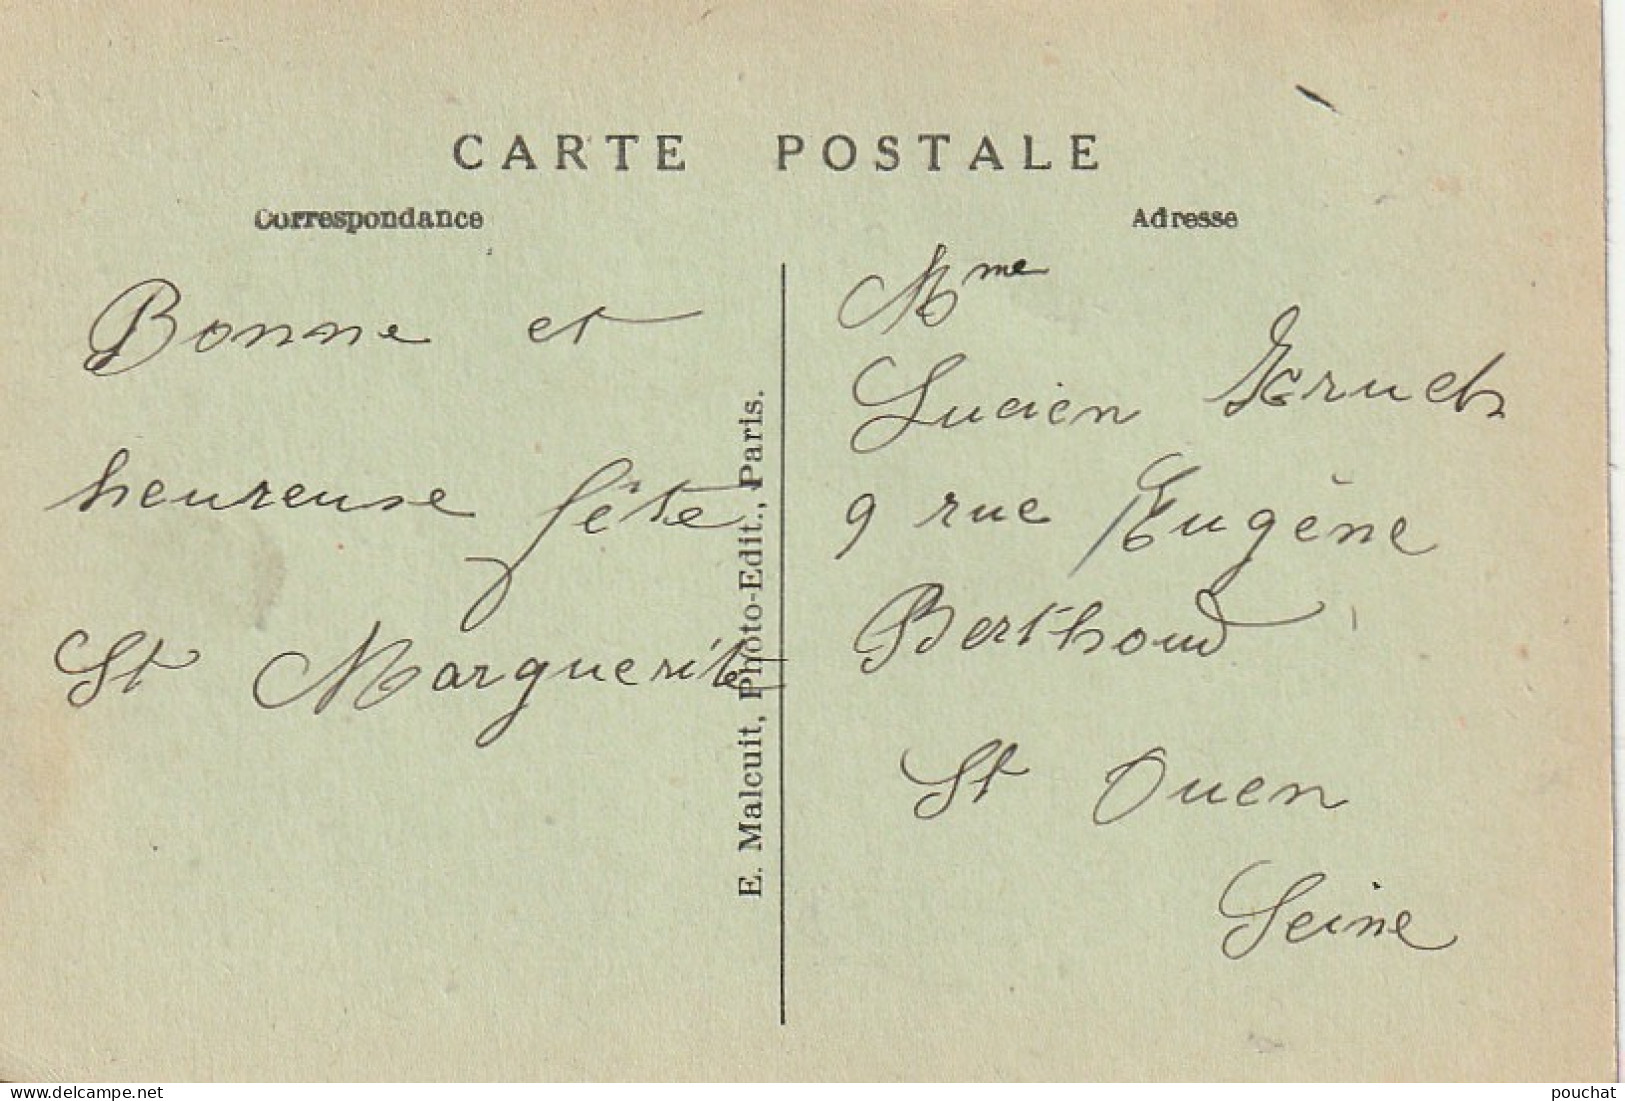 CARTE POSTALE
Correspondance
Bonne et
heureuse fête
St Marguerite
E. Malcuit, Photo-Edit., Paris.
Adresse
Mme
Lucien
9 rue Eugène
Berthoud
St Ouen
Seine
pouchat